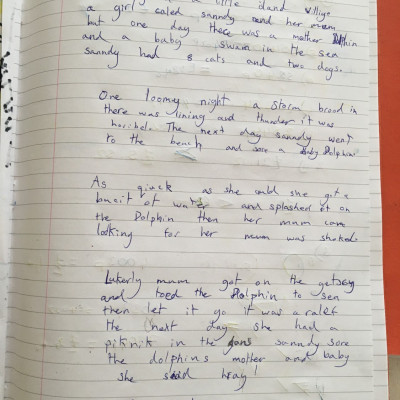 little iland villige
a girl caled sanndy and her mum
but one day there was a mother
and a baby swam in the sea
sanndy had 8 cats and two dogs.
One loomy night a storm brood in
there was lining and thunder it was
horibel. The next day sanndy went
to the beach and sore a Baby Dolphin
As qiuck as she cold she got a
bucit of water and splashed it on
the Dolphin then her mum cam
looking for her mum was shoked.
Lukerly mum got on the getsey
and toed the Dolphin to sea
then let it go it was a ralef
the next day she had a
piknik in the sanndy sore
the dolphins mother and baby
she said hray!